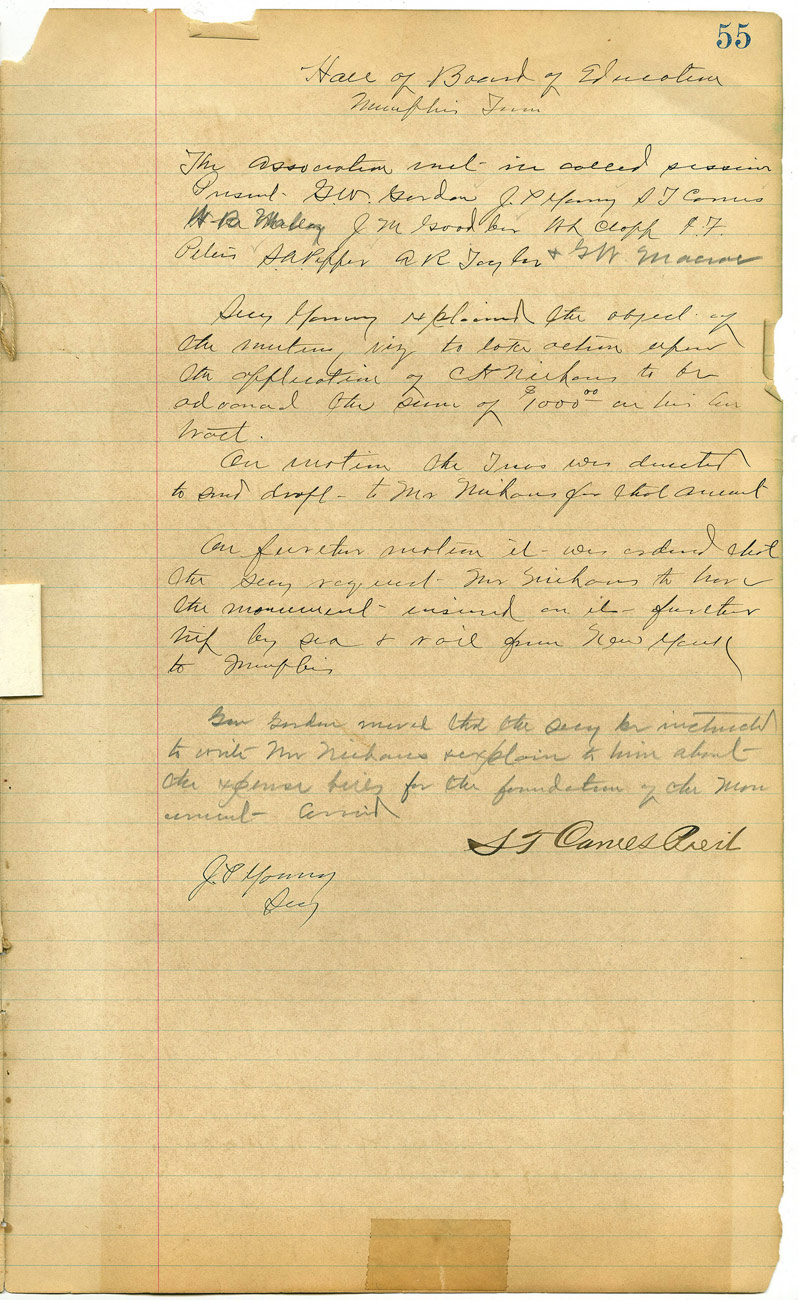 55
Hall of Board of Education
Memphis Tenn
The Association met in called session
Present G.W. Gordon J. P Young S T Carnes
J M Goodbar W L Clapp I. F.
Peters S. A. Pepper A R Taylor & G W Macrae
Secy Young explained the object of
the meeting viz to take action upon
the application of C H Niehaus to be
advanced the sum of $1000 00 on his con
tract.
On motion the Treas was directed
to send draft to Mr Niehaus for that amount
On further motion it was ordered that
the secy request Mr Niehaus to have
the monument insured on its further
trip by sea & rail from New York
to Memphis
Gen Gordon moved that the secy be instructed
to write Mr Niehaus & explain to him about
the expense for the foundation of the Mon
ument Carried
S T Carnes Presit
J. P Young
Secy